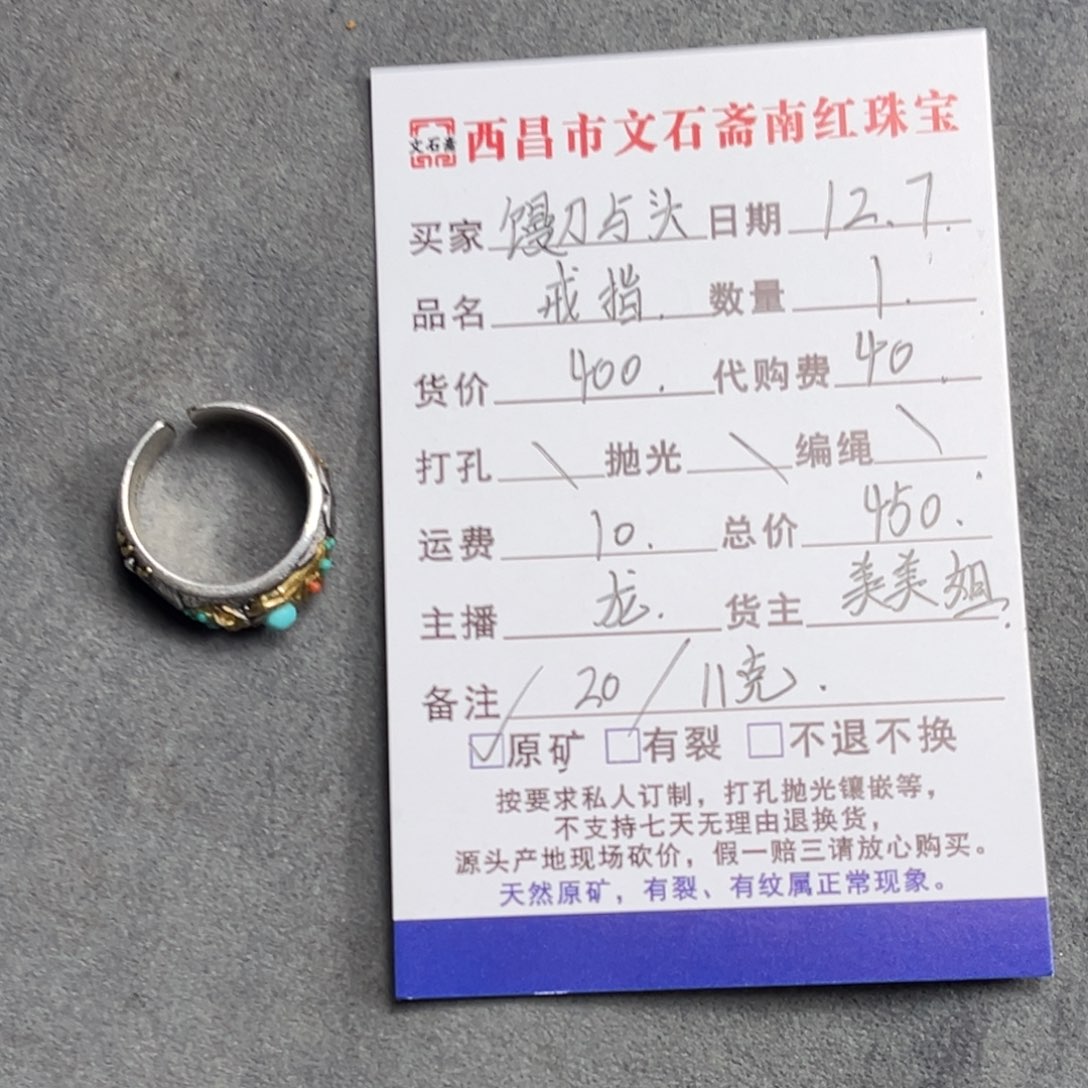 文石斋 西昌市文石斋南红珠宝
买家 馒刀与头 日期 12.7.
品名 戒指. 数量 1.
货价 400. 代购费 40.
打孔 \ 抛光 \ 编绳 \
运费 10. 总价 450.
主播 龙. 货主 美美姐.
备注 / 20 / 11克.
☑原矿 □有裂 □不退不换
按要求私人订制，打孔抛光镶嵌等，
不支持七天无理由退换货，
源头产地现场砍价，假一赔三请放心购买。
天然原矿，有裂、有纹属正常现象。